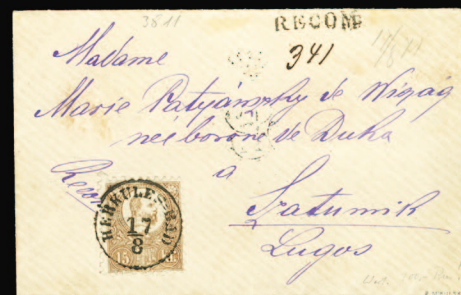 3811
RECOM
341
Madame
Marie Patyánszky de Wizág
née baronne de Duka
Recom
à
Szatumik
Lugos
HERKULESBAD
17
8
15